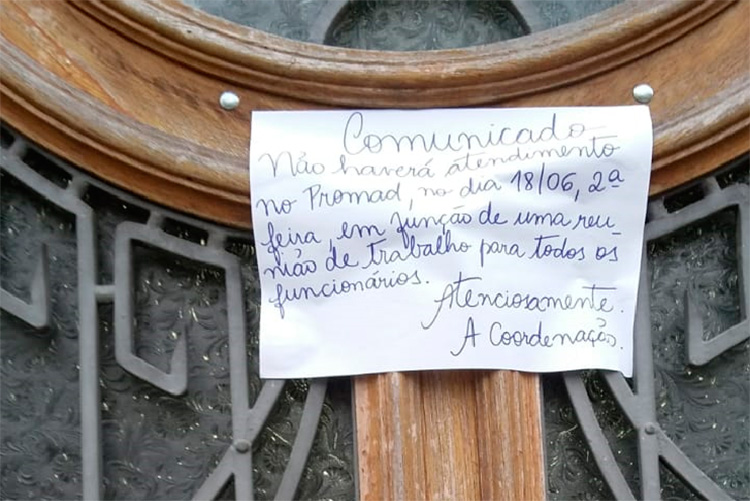 Comunicado
Não haverá atendimento
no Promad, no dia 18/06, 2ª
feira, em função de uma reu-
nião de trabalho para todos os
funcionários.
Atenciosamente.
A Coordenação.